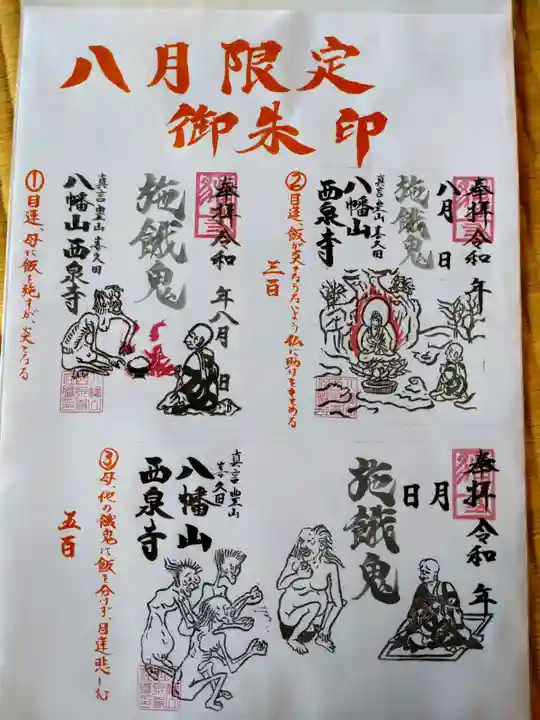 八月限定
御朱印
①目連、母に飯を施すが、炎となる
奉拝 令和 年 八月 日
施餓鬼
真言 豊山 喜久田
八幡山 西泉寺
②目連、飯が炎とならないよう仏に助けを求める
三百
奉拝 令和 年
八月 日
施餓鬼
真言 豊山 喜久田
八幡山
西泉寺
③母、他の餓鬼に飯を分けず、目連悲しむ
五百
奉拝 令和 年
月 日
施餓鬼
真言 豊山
喜久田
八幡山
西泉寺